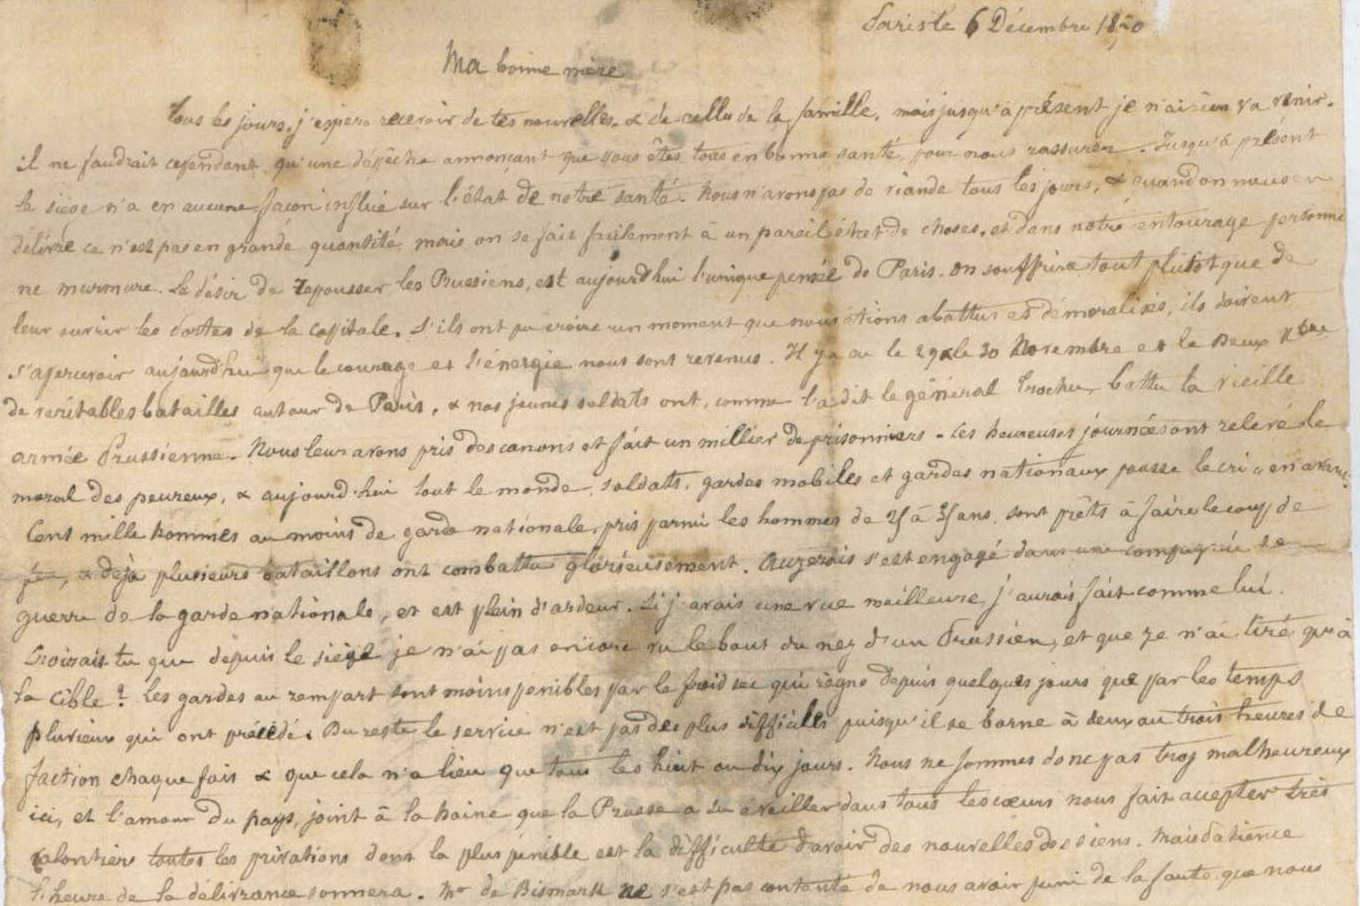 Paris le 6 Décembre 1870
Ma bonne mère
Tous les jours, j'espère recevoir de tes nouvelles & de celles de la famille, mais jusqu'à présent je n'ai rien vu venir.
il ne faudrait cependant qu'une dépêche annonçant que vous êtes tous en bonne santé, pour nous rassurer. Jusqu'à présent
le siège n'a en aucune façon influé sur l'état de notre santé. Nous n'avons pas de viande tous les jours, & quand on nous en
délivre ce n'est pas en grande quantité, mais on se fait facilement à un pareil état de choses, et dans notre entourage personne
ne murmure. Le désir de repousser les Prussiens, est aujourd'hui l'unique pensée de Paris. On souffrira tout plutôt que de
leur ouvrir les portes de la capitale. S'ils ont pu croire un moment que nous étions abattus et démoralisés, ils doivent
s'apercevoir aujourd'hui que le courage et l'énergie nous sont revenus. Il y a eu le 29 & le 30 Novembre et le Deux Xbre
de véritables batailles autour de Paris, & nos jeunes soldats ont, comme l'a dit le général Trochu, battu la vieille
armée Prussienne. Nous leur avons pris des canons et fait un millier de prisonniers. Ces heureuses journées ont relevé le
moral des peureux, & aujourd'hui tout le monde, soldats, gardes mobiles et gardes nationaux pousse le cri « en avant »
Cent mille hommes au moins de garde nationale, pris parmi les hommes de 25 à 35 ans, sont prêts à faire le coup de
feu, & déjà plusieurs bataillons ont combattu glorieusement. Auzerais s'est engagé dans une compagnie de
guerre de la garde nationale, et est plein d'ardeur. Si j'avais une vue meilleure, j'aurais fait comme lui.
Croirais tu que depuis le siège je n'ai pas encore vu le bout du nez d'un Prussien, et que je n'ai tiré qu'à
la cible ? Les gardes au rempart sont moins pénibles par le froid sec qui règne depuis quelques jours que par les temps
pluvieux qui ont précédé. Du reste le service n'est pas des plus difficiles puisqu'il se borne à deux ou trois heures de
faction chaque fois & que cela n'a lieu que tous les huit ou dix jours. Nous ne sommes donc pas trop malheureux
ici, et l'amour du pays, joint à la haine que la Prusse a su éveiller dans tous les cœurs nous fait accepter très
volontiers toutes les privations dont la plus pénible est la difficulté d'avoir des nouvelles des siens. Mais patience
l'heure de la délivrance sonnera. Mr de Bismark ne s'est pas contenté de nous avoir puni de la faute que nous